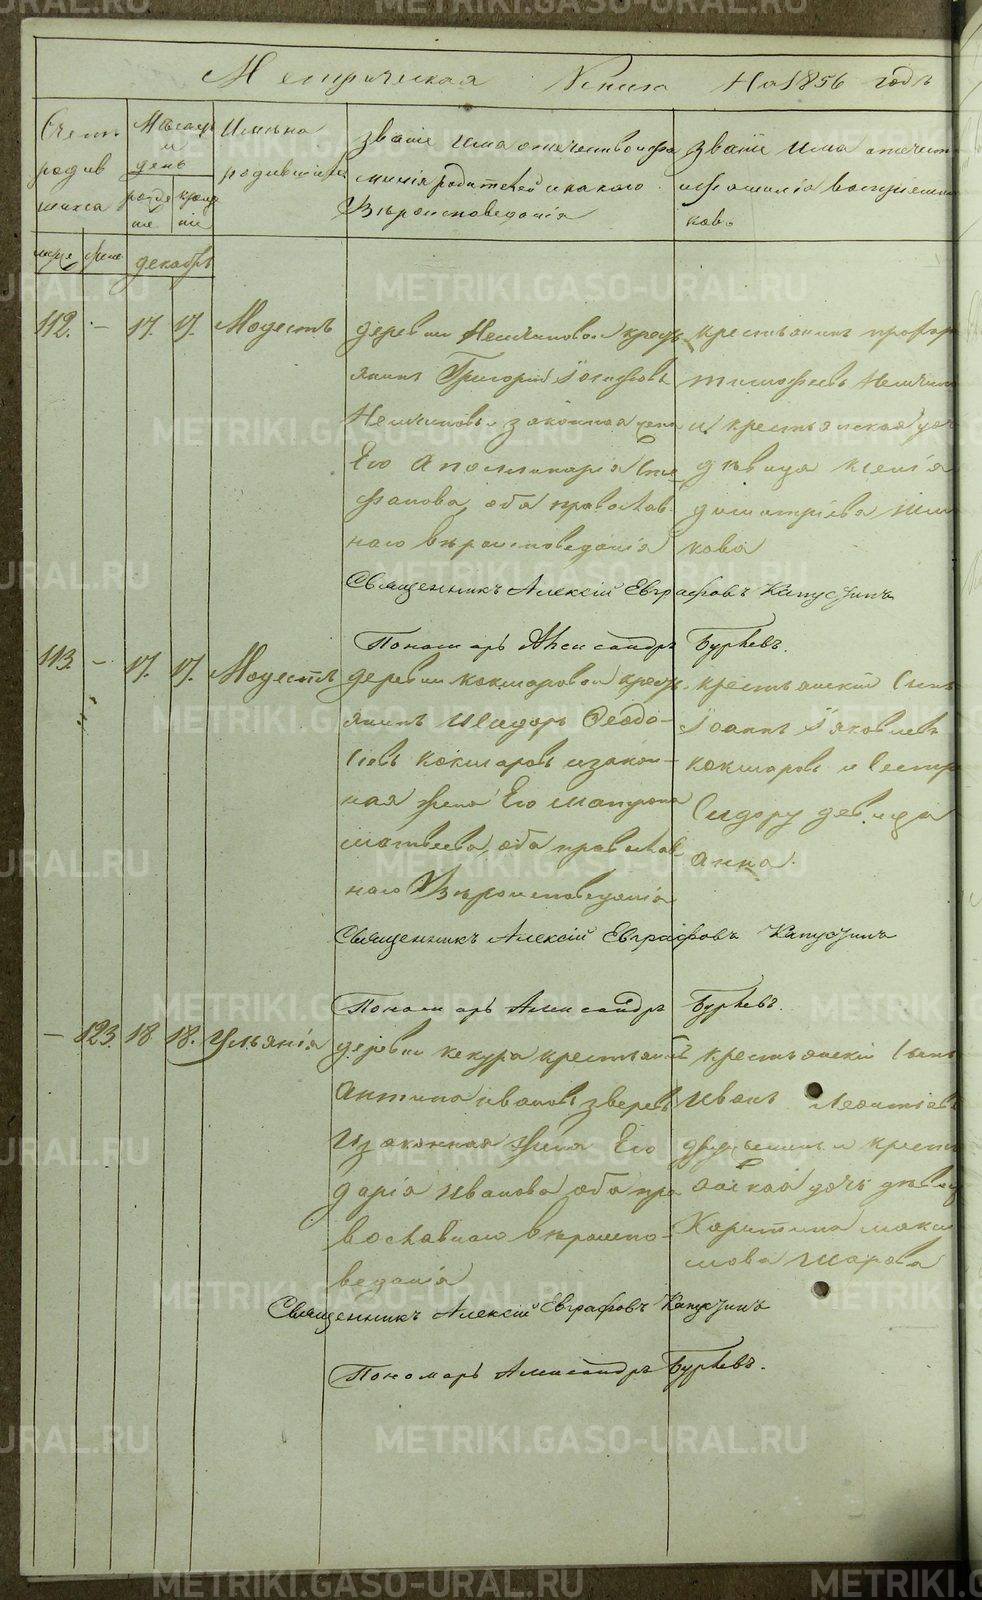 Метрическая Книга На 1856 годъ
Счетъ родив шихся
Мѣсяцъ и день
рожде ніе
креще ніе
Имена родившихся
Званіе имя отечество и фа
милія родителей и какого
Вѣроисповеданія
Званіе имя отечест
и фамилія воспріемни
ковъ
муже
жене
декабрь
112. — 17. 17. Модестъ
деревни Немчиновой крест
янинъ Григорій Іосифовъ
Немчиновъ и законная жена
Его Аполлинарія Сте
фанова, оба православ
наго вѣроисповеданія
крестьянинъ
тимофеевъ Немчин
и крестьянская доч
дѣвица Ксенія
димитріева Нем
нова
Священникъ Алексій Евграфовъ Капустинъ
Пономарь Александръ Буртевъ.
113. — 17. 17. Модестъ
деревни кокшаровой крест
янинъ Исидоръ Феодо-
сіевъ кокшаровъ и закон-
ная жена Его Матрона
матвеева, оба православ
наго Вѣроисповеданія
крестьянскій Сынъ
Іоаннъ Іяковлевъ
кокшаровъ и Сестра
Сидору девица
Анна.
Священникъ Алексій Евграфовъ Капустинъ
Пономарь Александръ Буртевъ.
— 123. 18 18. Ульянія
деревни кекура крестьянинъ
Антипа ивановъ зверевъ
И законная жена Его
дарія иванова, оба пра
вославнаго вѣроиспо-
веданія
крестьянскій Сынъ
Иванъ Леонтіевъ
и крестъ
янская дочь дѣвиц
Харитина макси
мова Шарова
Священникъ Алексій Евграфовъ Капустинъ
Пономарь Александръ Буртевъ.
METRIKI.GASO-URAL.RU